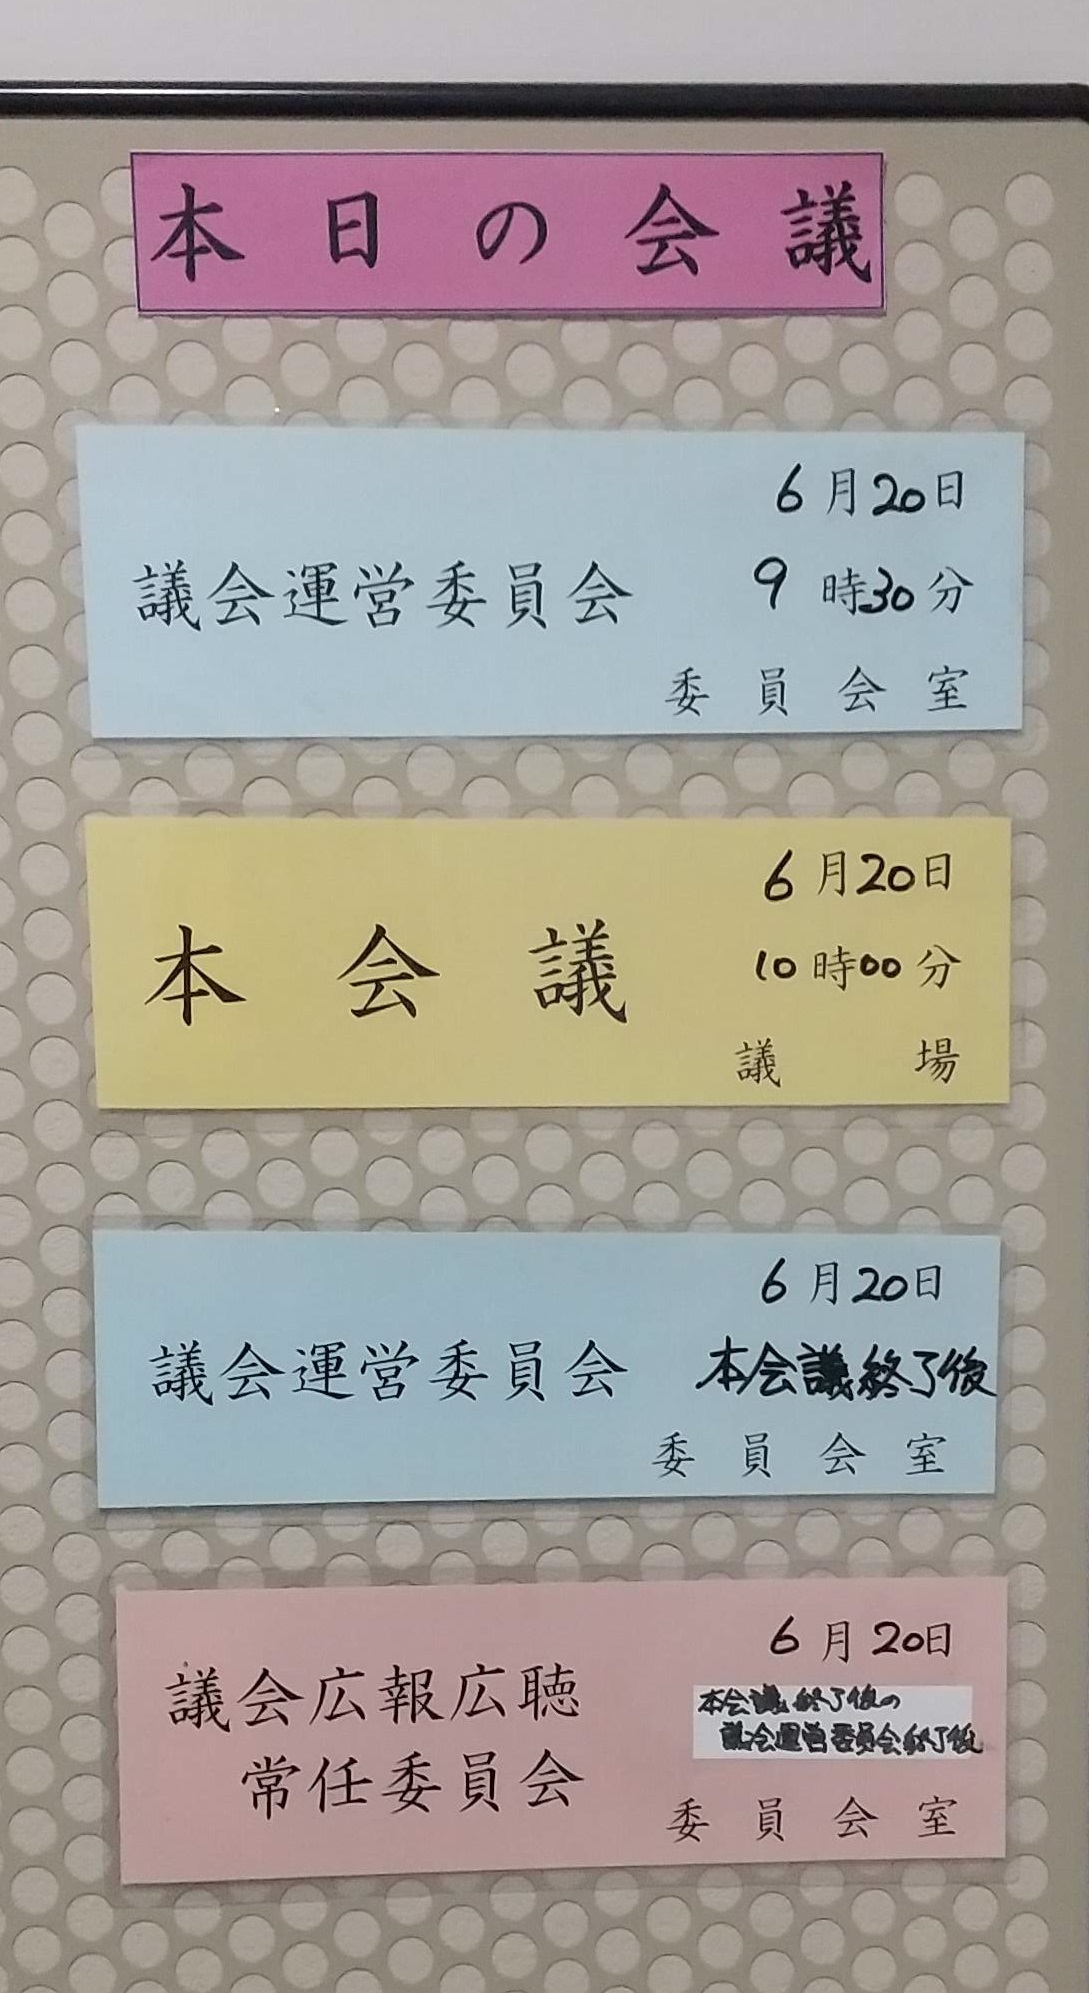 本日の会議
6月20日
議会運営委員会 9時30分
委員会室
6月20日
本会議 10時00分
議場
6月20日
議会運営委員会 本会議終了後
委員会室
6月20日
議会広報広聴 本会議終了後の
議会運営委員会終了後
常任委員会
委員会室